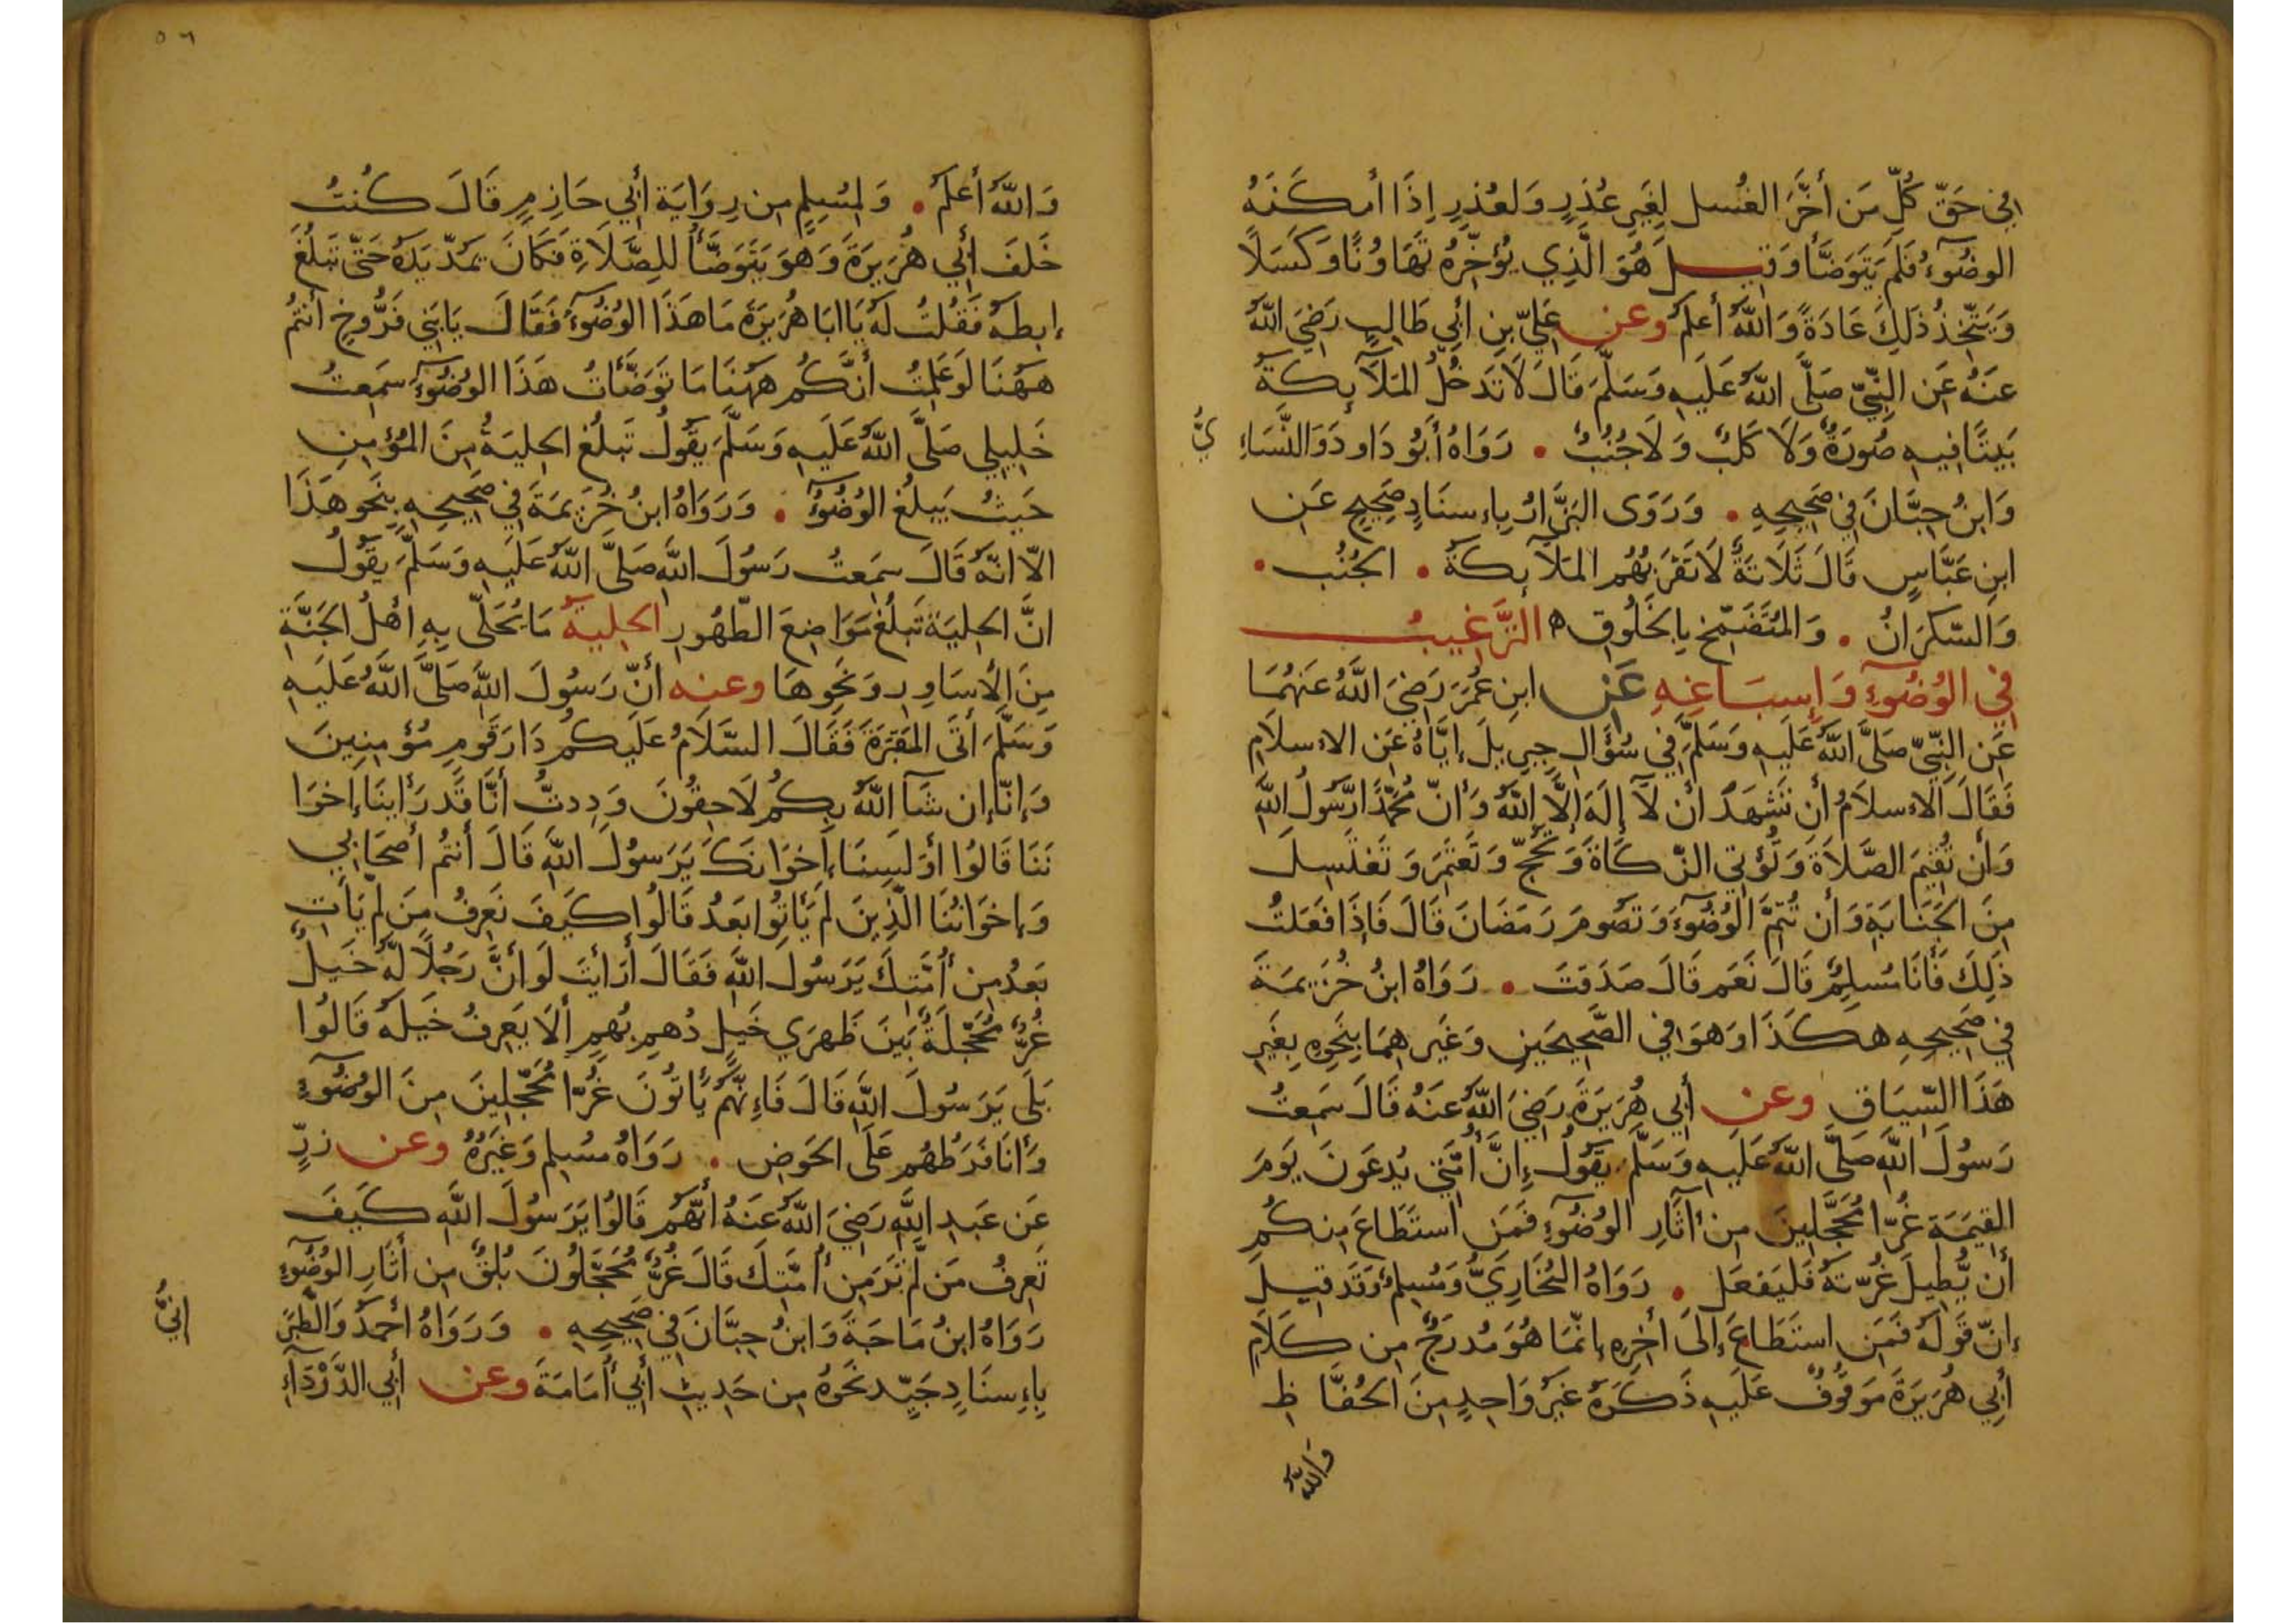 في حَقّ كُلِّ مَن أخَّرَ الغُسل لِغَيرِ عُذرٍ وَلعُذرٍ إذَا أمكَنَهُ
الوضُوءُ فَلَم يَتَوَضَّأ وَقيل هُوَ الَّذِي يُؤخِّرُهُ تَهَاوُنًا وَكَسَلًا
وَيَتَّخِذُ ذَلِكَ عَادَةً وَاللهُ أعلمُ وعن عَلِيّ بنِ أبي طَالِبٍ رَضيَ اللهُ
عنَهُ عَن النَّبِيّ صَلَّى اللهُ عَلَيهِ وَسَلَّمَ قَالَ لَا تَدخُلُ المَلَآئِكَةُ
بَيتًا فِيهِ صُورَةٌ وَلَا كَلبٌ وَلَا جُنُبٌ . رَوَاهُ أَبُو دَاودَ وَالنَّسَاءِ
يُّ
وَابنُ حِبَّانَ فِي صَحِيحِهِ . وَرَوَى البَزَّارُ بِإِسنَادٍ صَحِيحٍ عَن
ابنِ عَبَّاسٍ قَالَ ثَلَاثَةٌ لَا تَقرَبُهُم المَلآئِكَةُ . الجُنُب .
وَالسّكرَانُ . وَالمُتَضَمّخ بِالخَلُوقِ ه التَّرغِيبُ
فِي الوُضُوءِ وَإِسبَاغِهِ عَن ابنِ عُمَرَ رَضيَ اللهُ عَنهُمَا
عَن النَّبِيّ صَلَّى اللهُ عَلَيهِ وَسَلَّمَ فِي سُؤَالِ جِبرِيلَ إيَّاهُ عَن الإسلَام
فَقَالَ الإسلَامُ أن تَشهَدَ أن لَآ إلَهَ إلَّا اللهُ وَأنّ مُحَمَّدًا رَّسُولُ اللهِ
وَأن تُقِيمَ الصَّلَاةَ وَتُؤتِي الزّكَاةَ وَتَحُجّ وَتَعتَمِرَ وَتَغتَسِلَ
مِنَ الجَنَابَةِ وَأن تُتِمَّ الوُضُوءَ وَتَصُومَ رَمَضَانَ قَالَ فَإذَا فَعَلتُ
ذَلِكَ فَأنَا مُسلِمٌ قَالَ نَعَم قَالَ صَدَقتَ . رَوَاهُ ابنُ خُزَيمَةَ
فِي صَحِيحِهِ هكَذَا وَهوَ في الصَّحِيحَينِ وَغَيرِهِمَا بِنَحوِهِ بِغَيرِ
هَذَا السِّيَاقِ وعن أبي هُرَيرَةَ رَضيَ اللهُ عَنهُ قَالَ سَمِعتُ
رَسُولَ اللهِ صَلَّى اللهُ عَلَيهِ وَسَلَّمَ يَقُولُ إنَّ أُمَّتِي يُدعَونَ يَومَ
القِيمَةِ غُرّا مُّحَجَّلِينَ مِن آثَارِ الوُضُوءِ فَمَن استَطَاعَ مِنكُم
أن يُّطِيلَ غُرّتهُ فَليَفعَل . رَوَاهُ البُخَارِيُّ وَمُسلِمٌ وَقَد قِيلَ
إنّ قَولَهُ فَمَن استَطَاعَ إلَى آخِرِهِ إنّمَا هُوَ مُدرَجٌ مِن كَلَامِ
أبِي هُرَيرَةَ مَوقُوفٌ عَلَيهِ ذَكَرَهُ غَيرُ وَاحِدٍ مِنَ الحُفَّاظِ
وَاللهُ
٥٦
وَاللهُ أعلَمُ . وَلِمُسلِمٍ مِن رِوَايَةِ أبي حَازِمٍ قَالَ كُنتُ
خَلفَ أبي هُرَيرَةَ وَهوَ يَتَوَضَّأُ لِلصَّلَاةِ فَكَانَ يَمُدّ يَدَهُ حَتّى تَبلُغَ
إبطَهُ فَقُلتُ لَهُ يَا ابَا هُرَيرَةَ مَا هَذَا الوُضُوءُ فَقَالَ يَا بَنِي فَرُّوخٍ أنتُم
هَهُنَا لَو عَلِمتُ أنَّكُم هَهُنَا مَا تَوَضَّأتُ هَذَا الوُضُوءَ سَمِعتُ
خَلِيلِي صَلَّى اللهُ عَلَيهِ وَسَلَّمَ يَقُولُ تَبلُغُ الحِليَةُ مِنَ المُؤمِنِ
حَيثُ يَبلُغُ الوُضُوءُ . وَرَوَاهُ ابنُ خُزَيمَةَ فِي صَحِيحِهِ بِنَحوِ هَذَا
الّا انّهُ قَالَ سَمِعتُ رَسُولَ اللهِ صَلَّى اللهُ عَلَيهِ وَسَلَّمَ يَقُولُ
انَّ الحِليَةَ تَبلُغُ مَوَاضِعَ الطّهُورِ الحِليَةُ مَا يُحَلّى بِهِ أهلُ الجَنَّةِ
مِنَ الأسَاوِرِ وَنَحوِهَا وعنه أنّ رَسُولَ اللهِ صَلَّى اللهُ عَلَيهِ
وَسَلَّمَ أتَى المَقبَرَةَ فَقَالَ السَّلَامُ عَلَيكُم دَارَ قَومٍ مُؤمِنِينَ
وَإنّا إن شَآ اللهُ بِكُم لَاحِقُونَ وَدِدتُّ أنَّا قَد رَأينَا إخوَا
نَنَا قَالُوا أوَلَسنَا إخوَانَكَ يَرَسُولَ اللهِ قَالَ أنتُم أصحَابِي
وَإخوَانُنَا الَّذِينَ لَم يَأتُوا بَعدُ قَالُوا كَيفَ تَعرِفُ مَن لَم يَأتِ
بَعدُ مِن أُمَّتِكَ يَرَسُولَ اللهِ فَقَالَ أرَأيتَ لَو أنَّ رَجُلًا لَهُ خَيلٌ
غُرٌّ مُحَجَّلَةٌ بَينَ ظَهرَي خَيلٍ دُهمٍ بُهمٍ ألَا يَعرِفُ خَيلَهُ قَالُوا
بَلَى يَرَسُولَ اللهِ قَالَ فَإنّهُم يَأتُونَ غُرّا مُحَجَّلِينَ مِنَ الوُضُوءِ
وَأنَا فَرَطُهُم عَلَى الحَوضِ . رَوَاهُ مُسلِم وَغَيرُهُ وعن زرٍّ
عَن عَبدِ اللهِ رَضيَ اللهُ عَنهُ أنّهُم قَالُوا يَرَسُولَ اللهِ كَيفَ
تَعرِفُ مَن لَّم تَرَ مِن أُمَّتِكَ قَالَ غُرٌّ مُّحَجَّلُونَ بُلقٌ مِن أثَارِ الوُضُوءِ
رَوَاهُ ابنُ مَاجَةَ وَابنُ حِبَّانَ فِي صَحِيحِهِ . وَرَوَاهُ أحمَدُ وَالطَّبَرَ
انِيُّ
بِإِسنَادٍ جَيّدٍ نَحوَهُ مِن حَدِيثِ أبي أُمَامَةَ وعن أبي الدَّردَآءِ